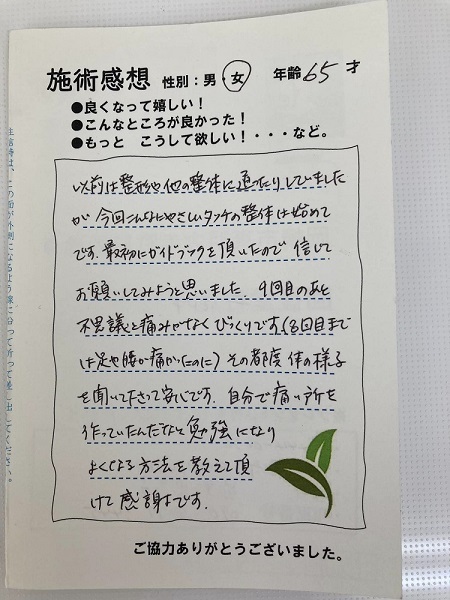 施術感想 性別：男・女 年齢 65 才
●良くなって嬉しい！
●こんなところが良かった！
●もっと こうして欲しい！・・・など。
以前は整形や他の整体に通ったりしていました
が 今回こんなにやさしいタッチの整体は始めて
です。最初にガイドブックを頂いたので 信じて
お願いしてみようと思いました。9回目のあと
不思議と痛みがなくびっくりです(8回目まで
は足や腰が痛かったのに) その都度 体の様子
を聞いて下さって安心です。自分で痛い所を
作っていたんだなと勉強になり
よくなる方法を教えて頂
けて感謝です。
ご協力ありがとうございました。
返信時は、この面が外側になるよう線に沿って折って差し出してください。